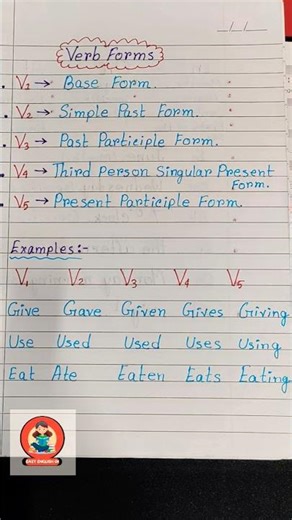 Verb Forms
V₁ → Base Form.
V₂ → Simple Past Form.
V₃ → Past Participle Form.
V₄ → Third Person Singular Present
Form.
V₅ → Present Participle Form.
Examples:-
V₁ V₂ V₃ V₄ V₅
Give Gave Given Gives Giving
Use Used Used Uses Using
Eat Ate Eaten Eats Eating